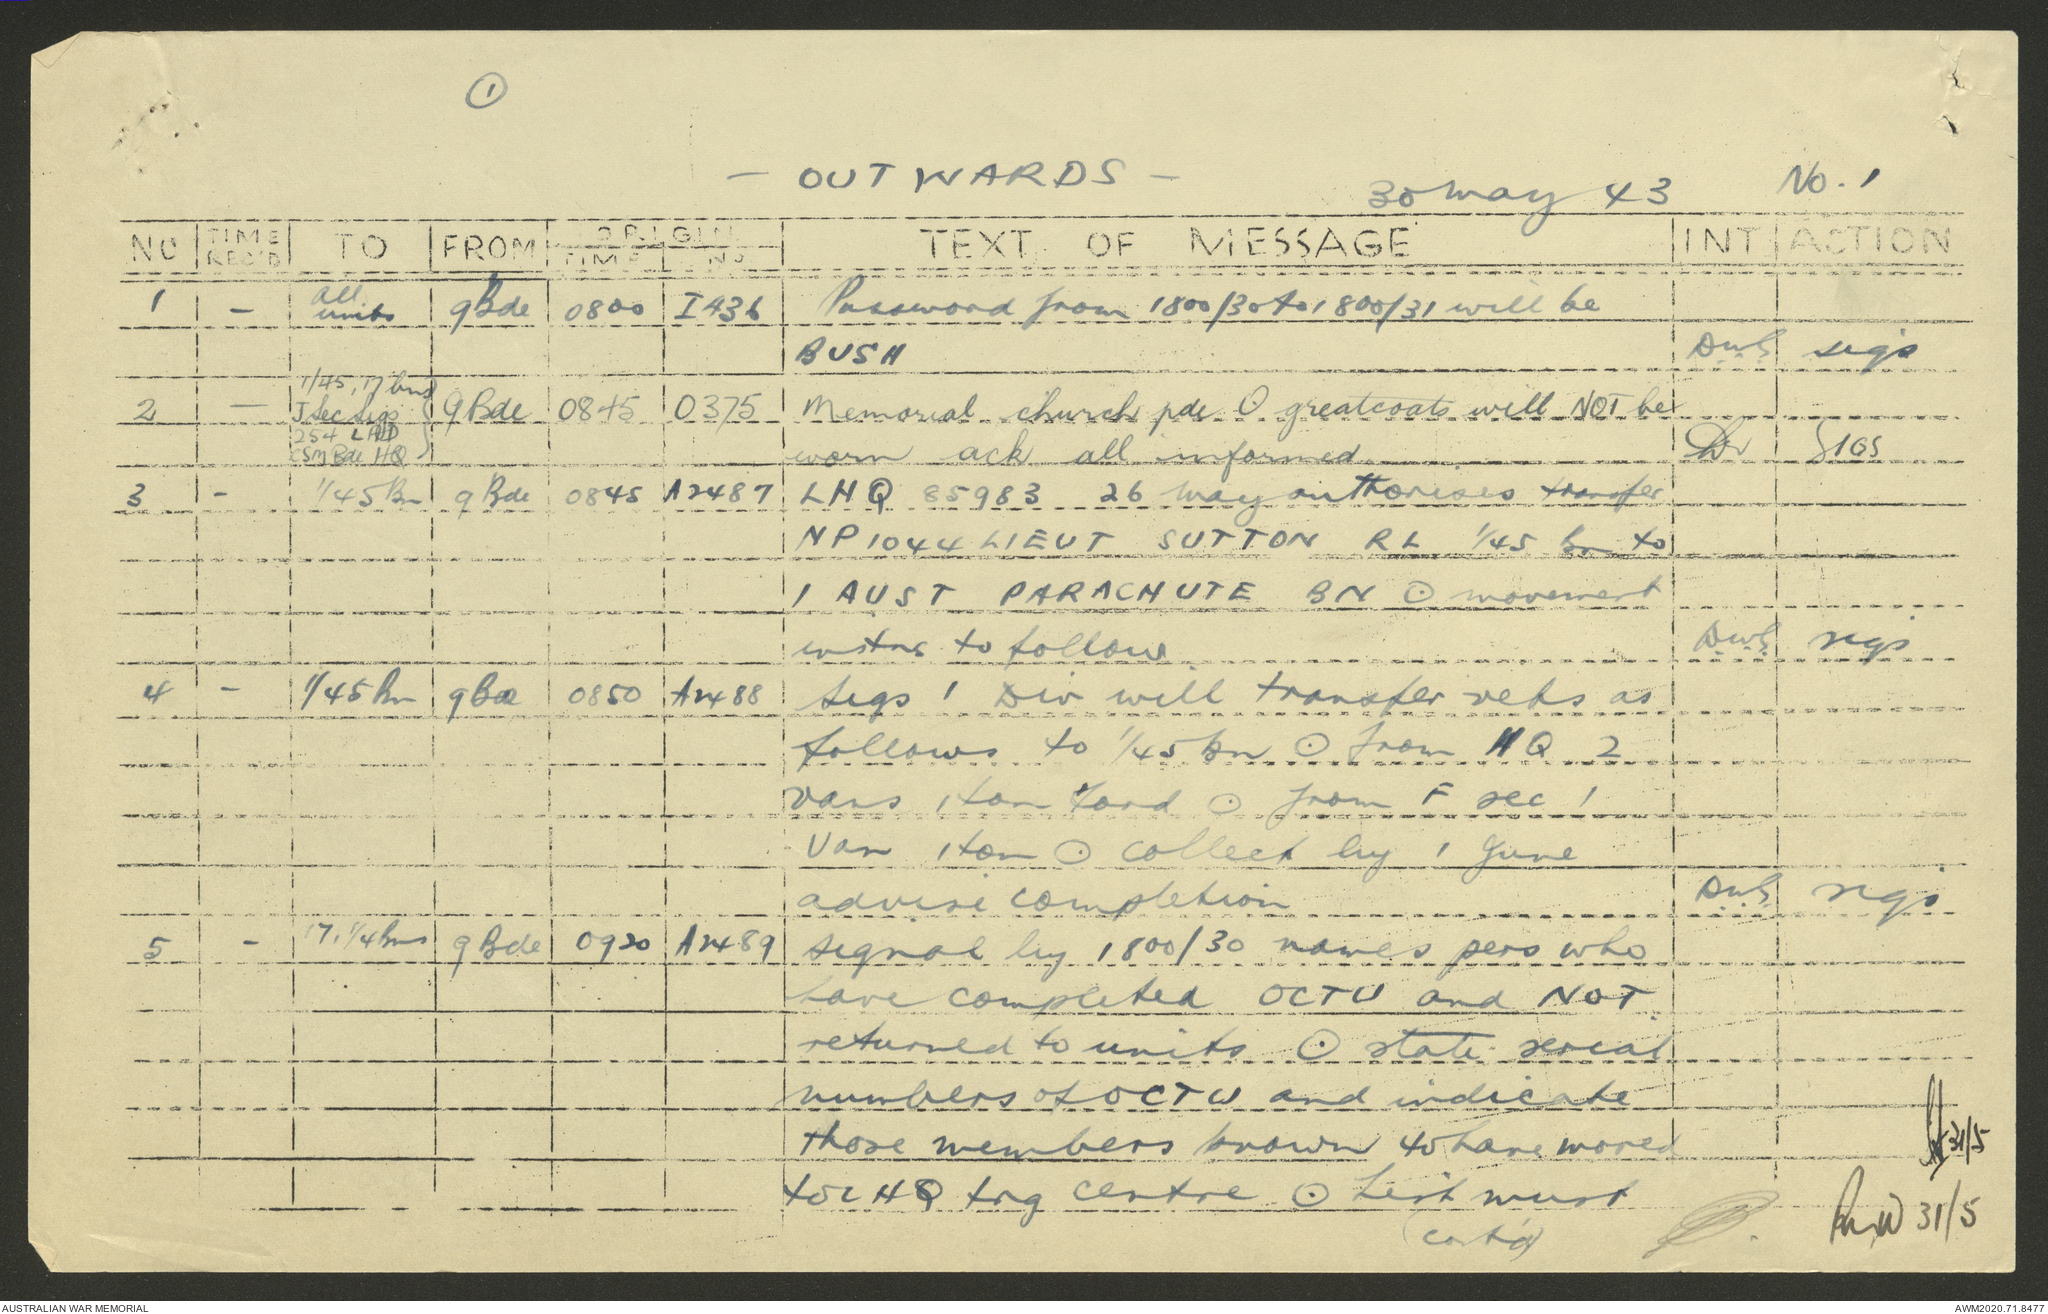 1
- OUTWARDS -
30 May 43
No. 1
NO TIME REC'D TO FROM ORIGIN TIME NO TEXT OF MESSAGE INT ACTION
1 - All units 9 Bde 0800 I436 Password from 1800/30 to 1800/31 will be
BUSH DWS sigs
1/45, 17 bns
2 - J Sec Sigs 9 Bde 0845 O375 Memorial church pde ⊙ greatcoats will NOT be
254 LAD
CSM Bde HQ worn ack all informed SIGS
3 - 1/45 Bn 9 Bde 0845 A2487 LHQ 85983 26 May authorises transfer
NP1044 LIEUT SUTTON RL 1/45 bn to
1 AUST PARACHUTE BN ⊙ movement
instns to follow DWS sigs
4 - 1/45 Bn 9 Bde 0850 A2488 sigs 1 Div will transfer vehs as
follows to 1/45 bn ⊙ from HQ 2
vans 1 ton Ford ⊙ from F sec 1
Van 1 ton ⊙ collect by 1 June
advise completion DWS sigs
5 - 17, 1/4 bns 9 Bde 0920 A2489 signal by 1800/30 names pers who
have completed OCTU and NOT
returned to units ⊙ state serial
numbers of OCTU and indicate
those members known to have moved
to LHQ trg centre ⊙ List must
(cont'd)
31/5
31/5
AUSTRALIAN WAR MEMORIAL
AWM2020.71.8477